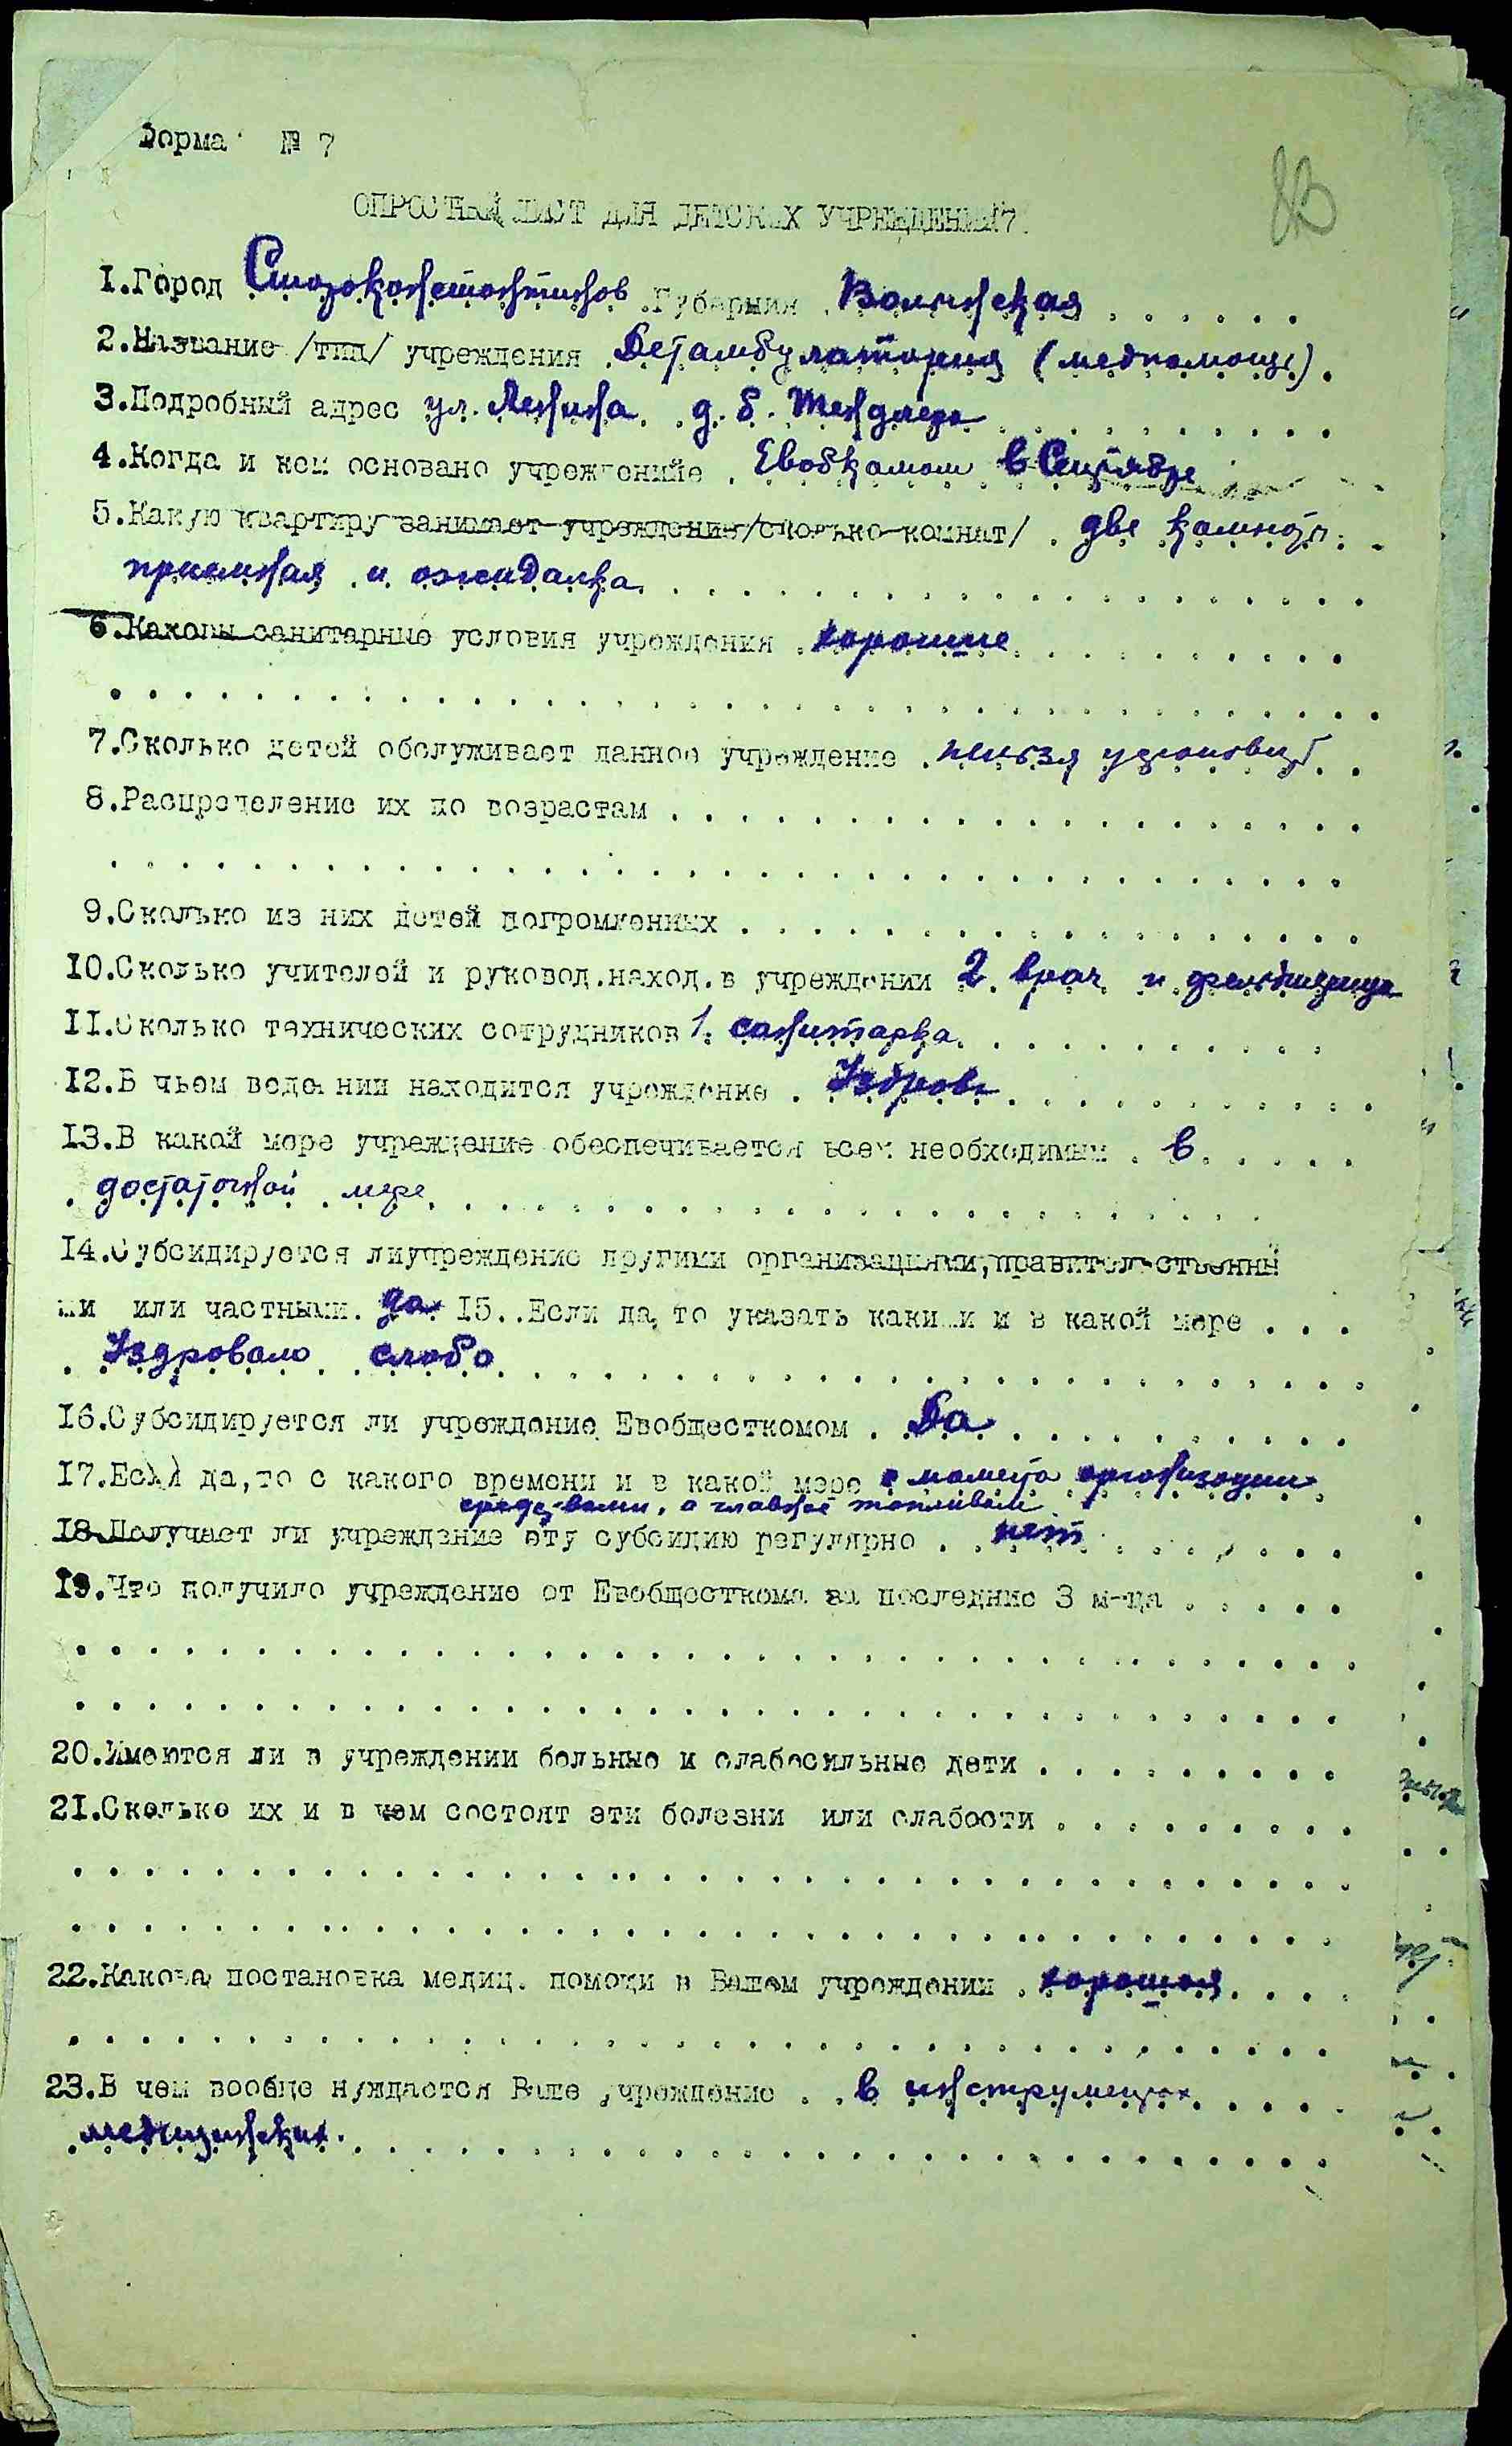 Форма № 7
83
ОПРОСНЫЙ ЛИСТ ДЛЯ ДЕТСКИХ УЧРЕЖДЕНИЙ
1.Город Староконстантинов Губерния Волынская
2.Название /тип/ учреждения Детамбулатория (медпомощь).
3.Подробный адрес ул. Ленина д. б.
4.Когда и кем основано учреждение Евобкомом в Сентябре
5.Какую квартиру занимает учреждение/сколько комнат/ две комнаты
приемная и ожидалка
6.Каковы санитарные условия учреждения хорошие
7.Сколько детей обслуживает данное учреждение нельзя установит
8.Распределение их по возрастам
9.Сколько из них детей погромленных
10.Сколько учителей и руковод.наход.в учреждении 2 врач и фельдшерица
11.Сколько технических сотрудников 1. санитарка
12.В чьем ведении находится учреждение Уздрова
13.В какой мере учреждение обеспечивается всем необходимым в
достаточной мере
14.Субсидируется лиучреждение другими организациями,правительственны
ми или частными. да 15..Если да, то указать какими и в какой мере
Уздровом слабо
16.Субсидируется ли учреждение Евобщесткомом Да
17.Если да,то с какого времени и в какой мере с момента организации
средствами, а главное топливом
18.Получает ли учреждение эту субсидию регулярно нет
19.Что получило учреждение от Евобщесткома за последние 3 м-ца
20.Имеются ли в учреждении больные и слабосильные дети
21.Сколько их и в чем состоят эти болезни или слабости
22.Какова постановка медиц. помощи в Вашем учреждении хорошая
23.В чем вообще нуждается Ваше учреждение в инструментах
медицинских.